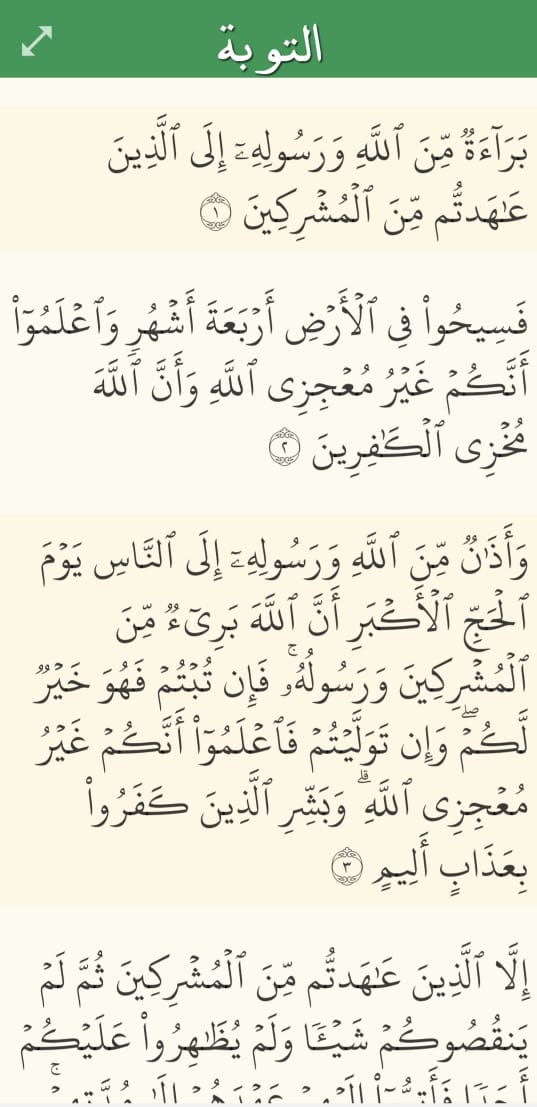 التوبة
بَرَآءَةٌ مِّنَ ٱللَّهِ وَرَسُولِهِۦٓ إِلَى ٱلَّذِينَ
عَـٰهَدتُّم مِّنَ ٱلْمُشْرِكِينَ ١
فَسِيحُوا۟ فِى ٱلْأَرْضِ أَرْبَعَةَ أَشْهُرٍ وَٱعْلَمُوٓا۟
أَنَّكُمْ غَيْرُ مُعْجِزِى ٱللَّهِ وَأَنَّ ٱللَّهَ
مُخْزِى ٱلْكَـٰفِرِينَ ٢
وَأَذَٰنٌ مِّنَ ٱللَّهِ وَرَسُولِهِۦٓ إِلَى ٱلنَّاسِ يَوْمَ
ٱلْحَجِّ ٱلْأَكْبَرِ أَنَّ ٱللَّهَ بَرِىٓءٌ مِّنَ
ٱلْمُشْرِكِينَ وَرَسُولُهُۥ ۚ فَإِن تُبْتُمْ فَهُوَ خَيْرٌ
لَّكُمْ ۖ وَإِن تَوَلَّيْتُمْ فَٱعْلَمُوٓا۟ أَنَّكُمْ غَيْرُ
مُعْجِزِى ٱللَّهِ ۗ وَبَشِّرِ ٱلَّذِينَ كَفَرُوا۟
بِعَذَابٍ أَلِيمٍ ٣
إِلَّا ٱلَّذِينَ عَـٰهَدتُّم مِّنَ ٱلْمُشْرِكِينَ ثُمَّ لَمْ
يَنقُصُوكُمْ شَيْـًٔا وَلَمْ يُظَـٰهِرُوا۟ عَلَيْكُمْ
أَحَدًا فَأَتِمُّوٓا۟ إِلَيْهِمْ عَهْدَهُمْ إِلَىٰ مُدَّتِهِمْ ۚ